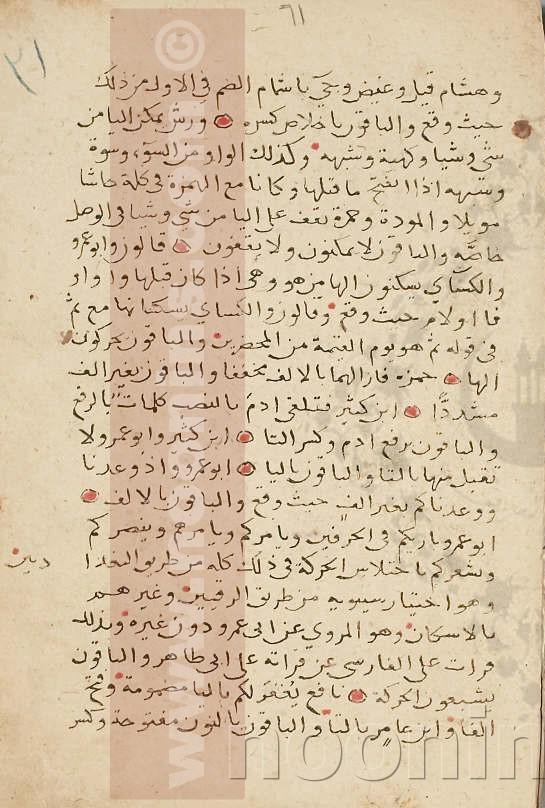 ٦١
وهشام قيل وغيض وجيء باشمام الضم في الاول من ذلك
حيث وقع والباقون باخلاص كسره ورش يمكن اليا من
شي وشيا وكهية وشبهه وكذلك الواو من السوء وسوة
وشبهه اذا انفتح ما قبلها وكانا مع الهمزة في كلمة حاشا
مويلا والمودة وحمزة يقف على اليا من شي وشيا في الوصل
خاصه والباقون لا يمكنون ولا يقفون قالون وابو عمرو
والكساي يسكنون الها من هو وهي اذا كان قبلها واو او
فا او لام حيث وقع وقالون والكساي يسكنانها مع ثم
في قوله ثم هو يوم القيمة من المحضرين والباقون يحركون
الها حمزه فازالهما بالالف مخففا والباقون بغير الف
مشددا ابن كثير فتلقى ادم بالنصب كلمات بالرفع
والباقون برفع ادم وكسر التا ابن كثير وابو عمرو ولا
تقبل منها بالتا والباقون باليا ابو عمرو واذ وعدنا
ووعدناكم بغير الف حيث وقع والباقون بالالف
ابو عمرو باريكم في الحرفين ويامركم ويامرهم وينصركم
ويشعركم باختلاس الحركة في ذلك كله من طريق البغدا
ديين
وهو اختيار سيبويه من طريق الرقيين وغيرهم
بالاسكان وهو المروي عن ابي عمرو دون غيره وبذلك
قرات على الفارسي عن قراته على ابي طاهر والباقون
يشبعون الحركة نافع يغفر لكم باليا مضمومة وفتح
الفا وابن عامر بالتا والباقون بالنون مفتوحة وكسر
www.noonin
noonin